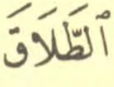 ٱلطَّلَاقَ